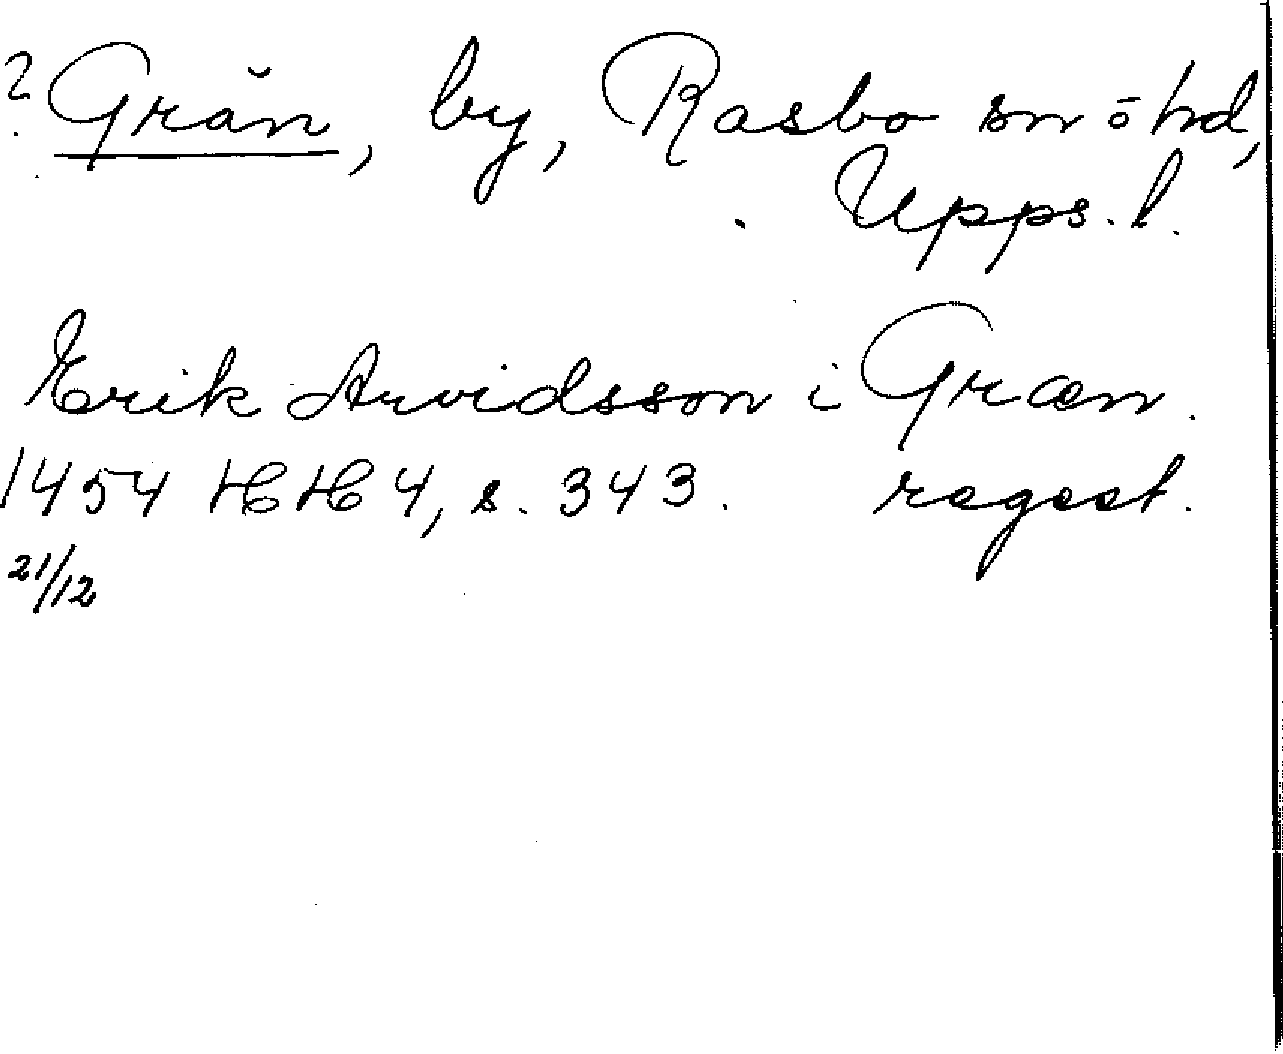 ? Grän, by, Rasbo sn ō hd,
Upps. l.
Erik Arvidsson i Græn.
1454 HH 4, s. 343. regest.
21/12